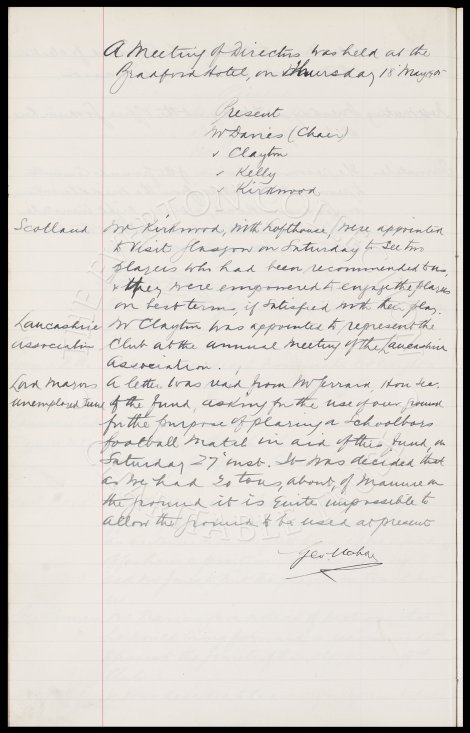 A Meeting of Directors was held at the
Bradford Hotel, on Thursday 18 May 05
Present
Mr Davies (Chair)
" Clayton
" Kelly
" Kirkwood
Scotland Mr Kirkwood, with Lofthouse, were appointed
to visit Glasgow on Saturday to see two
players who had been recommended to us,
& they were empowered to engage the players
on best terms, if satisfied with their play.
Lancashire Mr Clayton was appointed to represent the
Association Club at the annual Meeting of the Lancashire
Association.
Lord Mayors A letter was read from Mr Jerrard, Hon Sec.
Unemployed Fund of the Fund, asking for the use of our ground
for the purpose of playing a Schoolboys
football Match in aid of this Fund, on
Saturday 27 inst. It was decided that
as we had 30 tons, about, of Manure on
the ground it is quite impossible to
allow the ground to be used at present